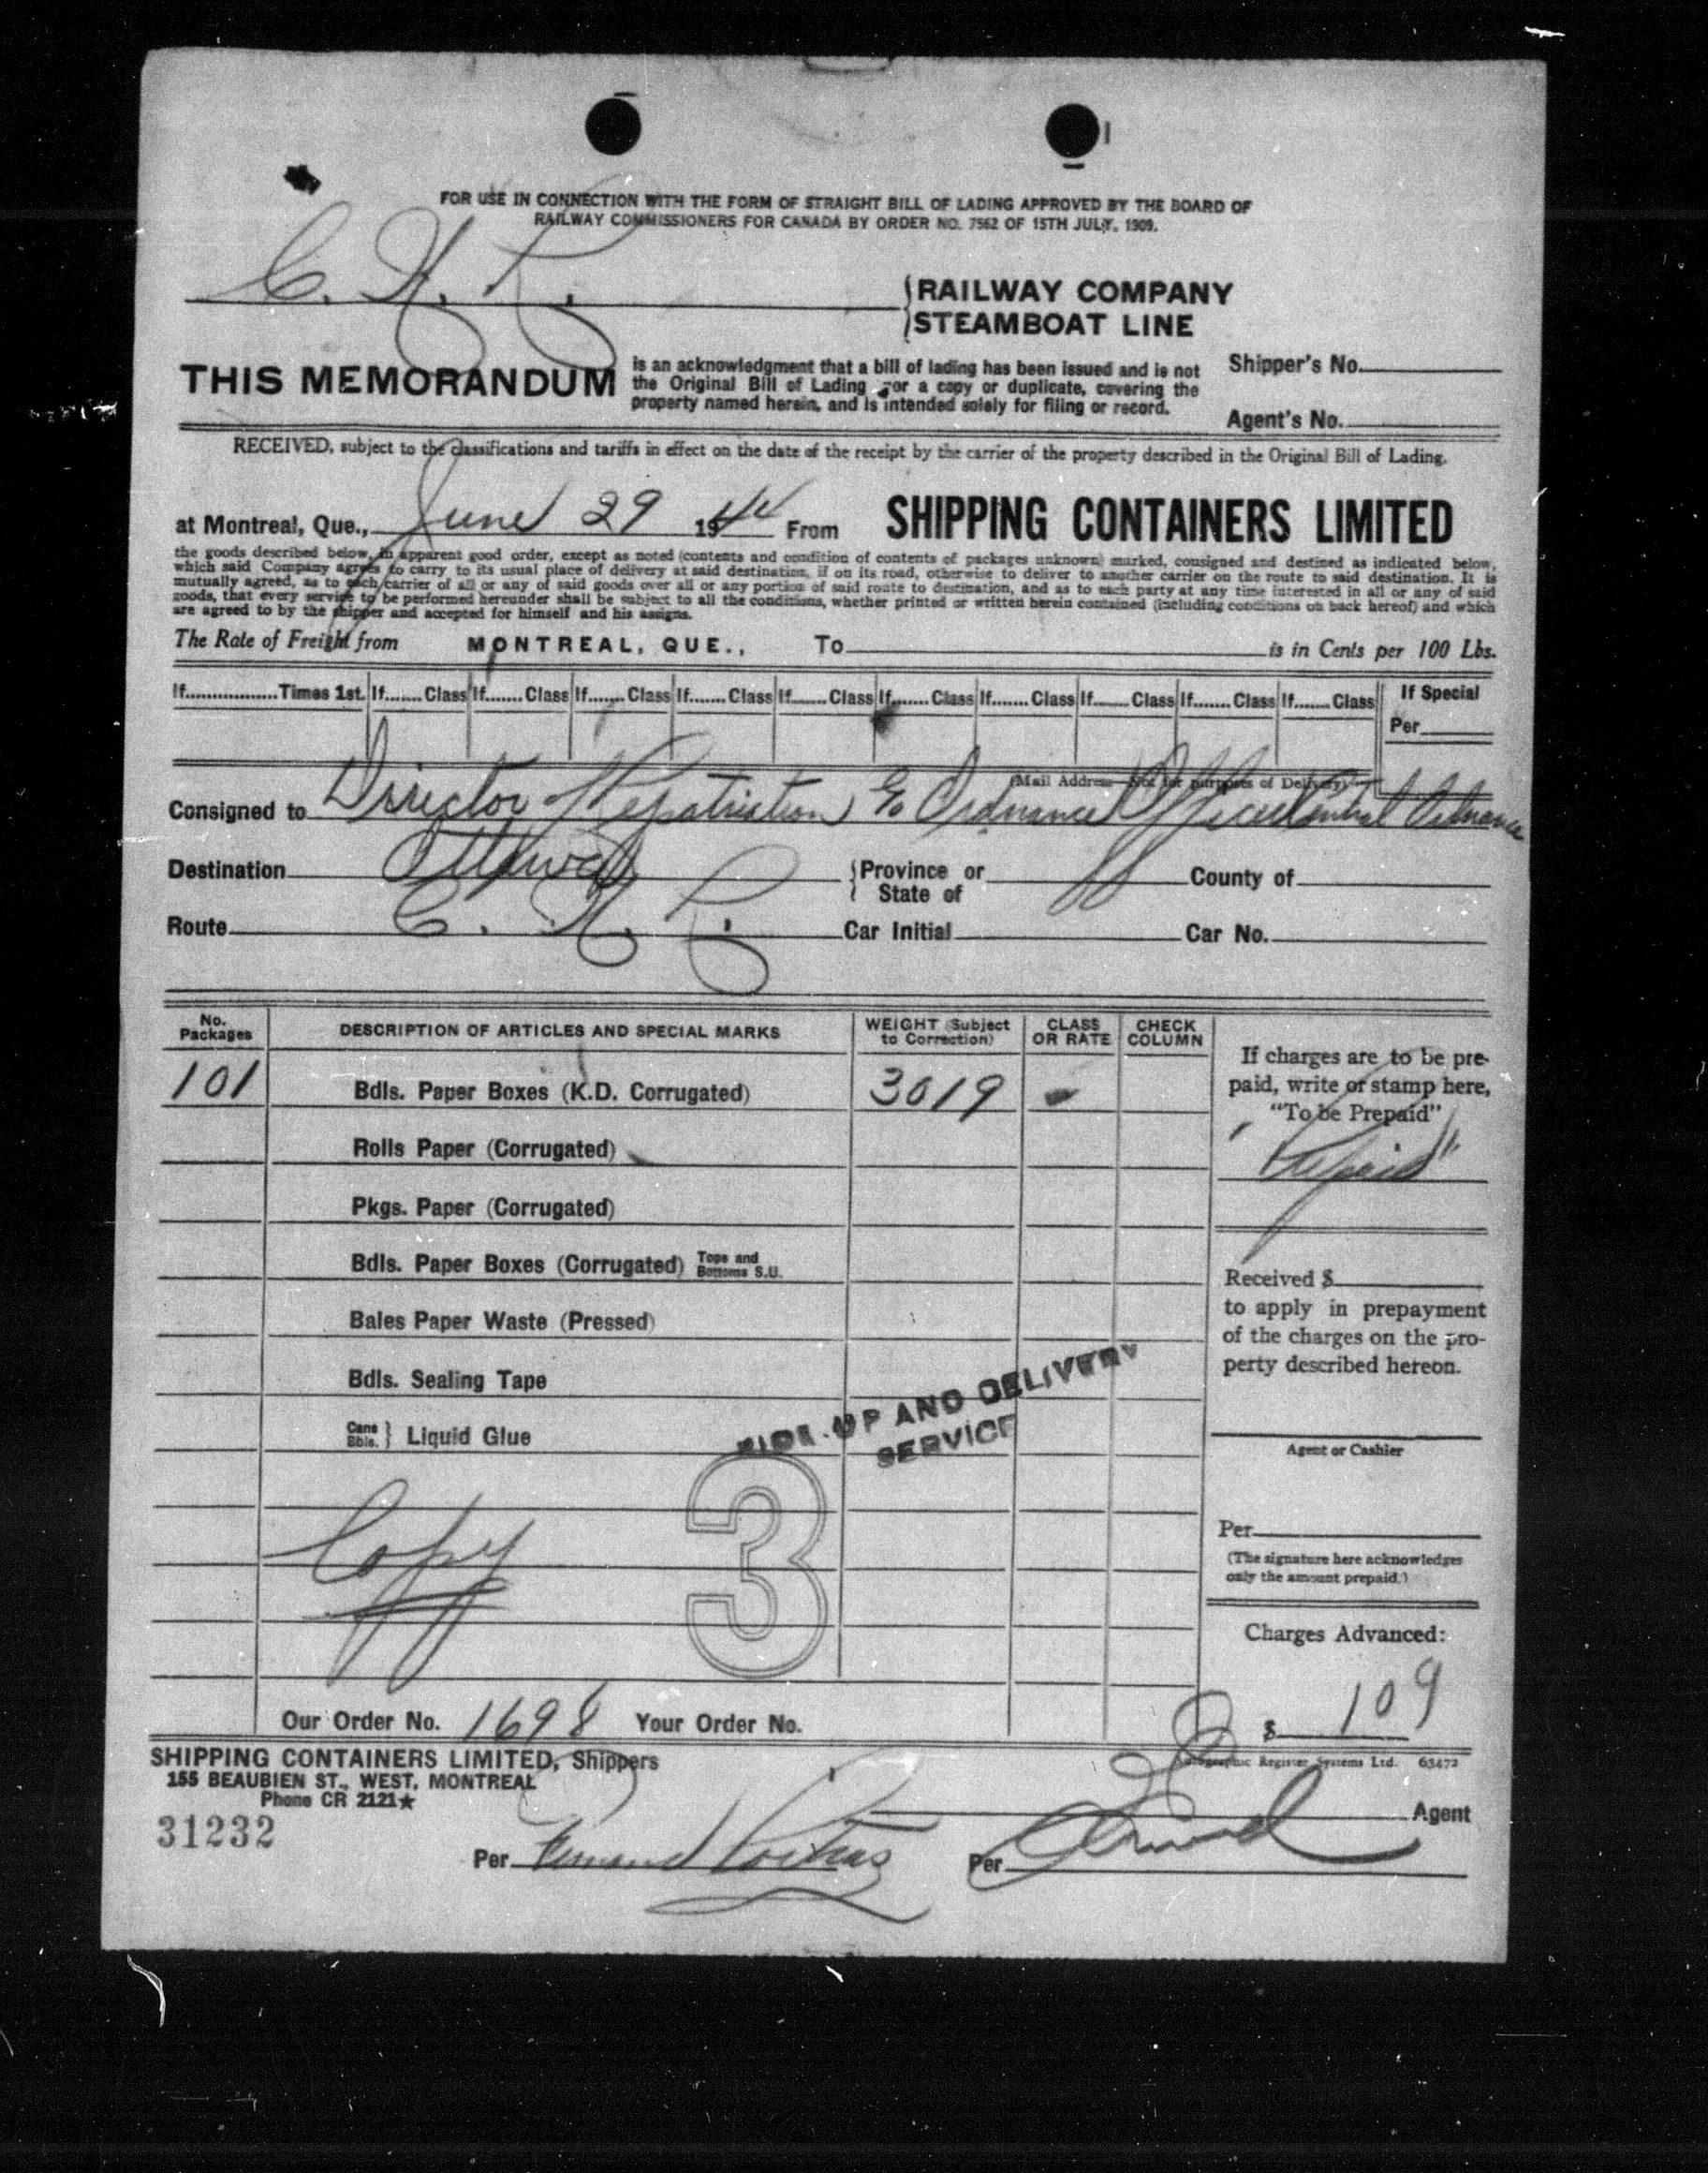 FOR USE IN CONNECTION WITH THE FORM OF STRAIGHT BILL OF LADING APPROVED BY THE BOARD OF
RAILWAY COMMISSIONERS FOR CANADA BY ORDER NO. 7562 OF 15TH JULY, 1909.
C. N. R. RAILWAY COMPANY
STEAMBOAT LINE
THIS MEMORANDUM is an acknowledgment that a bill of lading has been issued and is not
the Original Bill of Lading nor a copy or duplicate, covering the
property named herein, and is intended solely for filing or record.
Shipper's No.
Agent's No.
RECEIVED, subject to the classifications and tariffs in effect on the date of the receipt by the carrier of the property described in the Original Bill of Lading.
at Montreal, Que., June 29 1944 From SHIPPING CONTAINERS LIMITED
the goods described below, in apparent good order, except as noted (contents and condition of contents of packages unknown) marked, consigned and destined as indicated below,
which said Company agrees to carry to its usual place of delivery at said destination, if on its road, otherwise to deliver to another carrier on the route to said destination. It is
mutually agreed, as to each carrier of all or any of said goods over all or any portion of said route to destination, and as to each party at any time interested in all or any of said
goods, that every service to be performed hereunder shall be subject to all the conditions, whether printed or written herein contained (including conditions on back hereof) and which
are agreed to by the shipper and accepted for himself and his assigns.
The Rate of Freight from MONTREAL, QUE., To is in Cents per 100 Lbs.
If Times 1st. If Class If Class If Class If Class If Class If Class If Class If Class If Class If Class If Special
Per
(Mail Address—Not for purposes of Delivery)
Consigned to Director Repatriation c/o Ordnance Officer Central Ordnance
Destination Ottawa Province or State of County of
Route C. N. R. Car Initial Car No.
No. Packages DESCRIPTION OF ARTICLES AND SPECIAL MARKS WEIGHT (Subject to Correction) CLASS OR RATE CHECK COLUMN
101 Bdls. Paper Boxes (K.D. Corrugated) 3019
Rolls Paper (Corrugated)
Pkgs. Paper (Corrugated)
Bdls. Paper Boxes (Corrugated) Tops and Bottoms S.U.
Bales Paper Waste (Pressed)
Bdls. Sealing Tape
Cans Bbls. } Liquid Glue
PICK-UP AND DELIVERY
SERVICE
3
Copy
If charges are to be pre-
paid, write or stamp here,
"To be Prepaid"
"Prepaid"
Received $
to apply in prepayment
of the charges on the pro-
perty described hereon.
Agent or Cashier
Per
(The signature here acknowledges
only the amount prepaid.)
Charges Advanced:
$ 109
Our Order No. 1698 Your Order No.
Autographic Register Systems Ltd. 63472
SHIPPING CONTAINERS LIMITED, Shippers
155 BEAUBIEN ST., WEST, MONTREAL
Phone CR 2121★
Agent
31232
Per Fernand Poitras Per